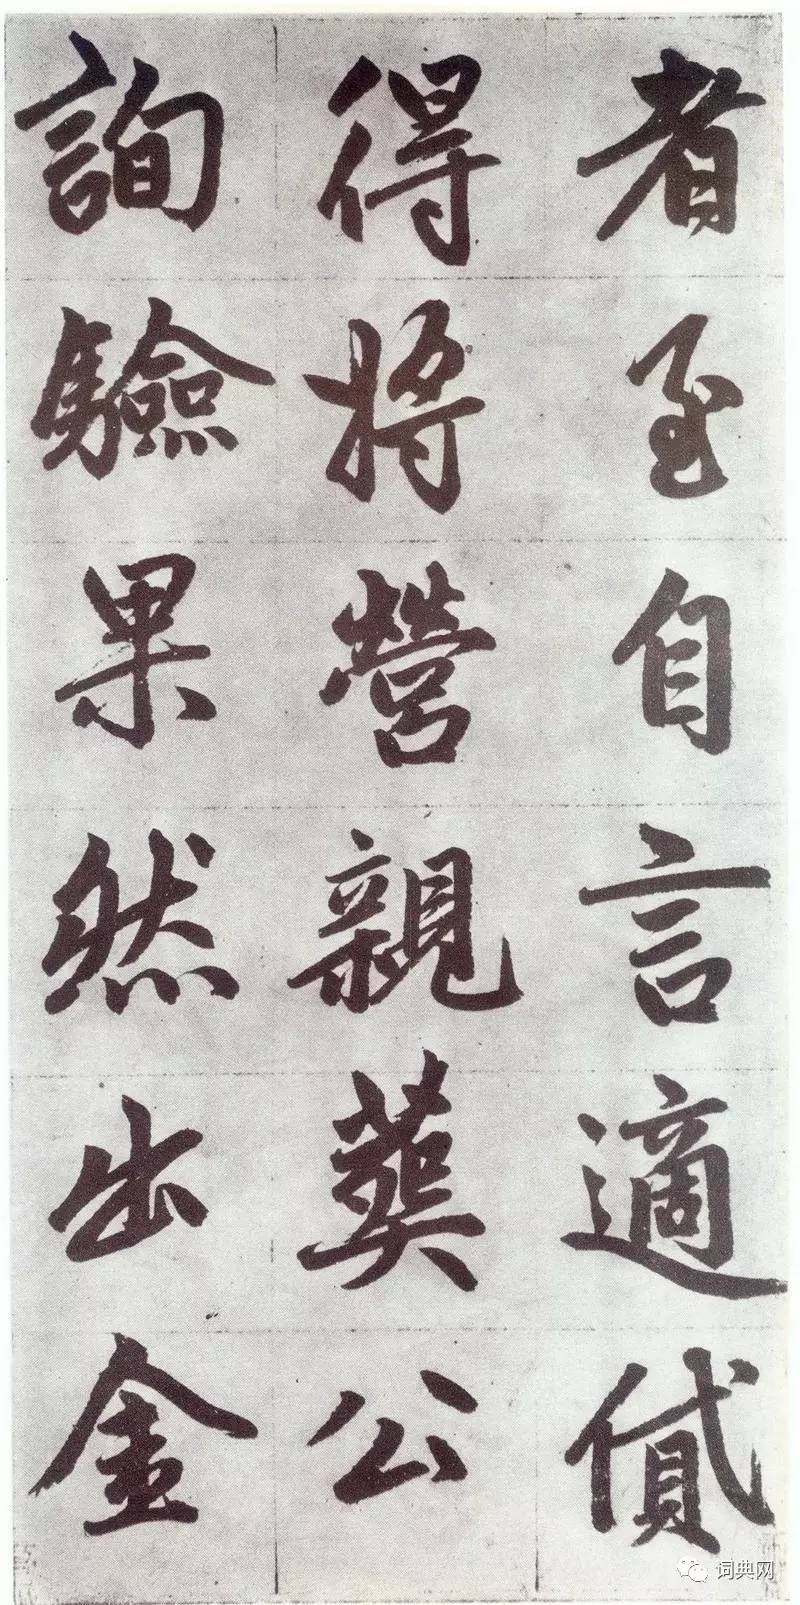 者至自言適貸
得將營親葬公
詢驗果然出金
词典网